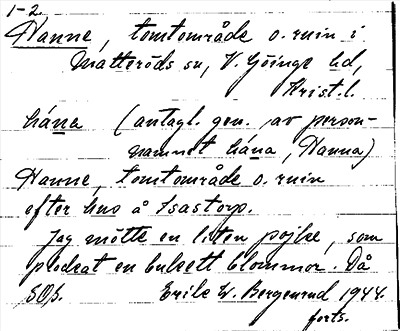 1-2
Hanne, tomtområde o. ruin i
Matteröds sn, V. Göinge hd,
Krist. l.
hána (antagl. gen. av person-
namnet hána, Hanna)
Hanne, tomtområde o. ruin
efter hus å Isastorp.
Jag mötte en liten pojke, som
plockat en bukett blommor. Då
SOS. Erik W. Bergenrud 1944.
forts.